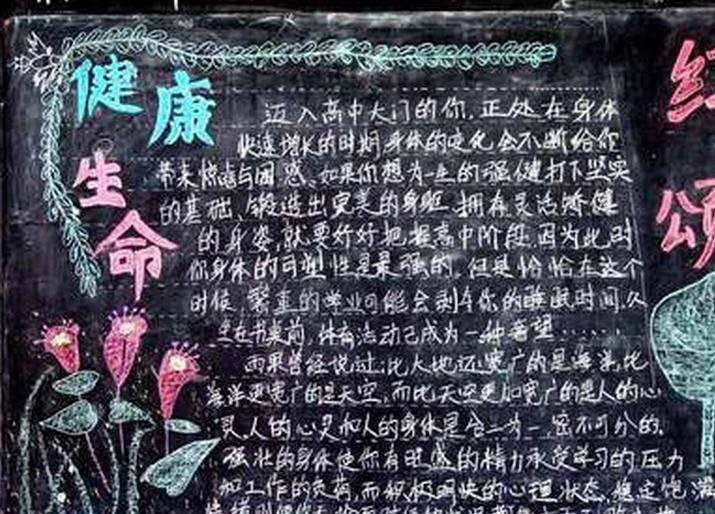 健康
生命
迈入高中大门的你,正处在身体
快速增长的时期身体的变化会不断给你
带来惊喜与困惑、如果你想为一生的强健打下坚实
的基础、锻造出完美的身躯 拥有灵活矫健
的身姿,就要好好把握高中阶段.因为此时
你身体的可塑性是最强的,但是恰恰在这个
时候 繁重的学业可能会剥夺你的睡眠时间,久
坐在书桌前,体育活动已成为一种奢望……
雨果曾经说过:比大地还宽广的是海洋,比
海洋更宽广的是天空,而比天空更加宽广的是人的心
灵.人的心灵和人的身体是合二为一,密不可分的.
强壮的身体使你有旺盛的精力承受学习的压力
和工作的负荷,而积极明快的心理状态,稳定饱满
红
颂